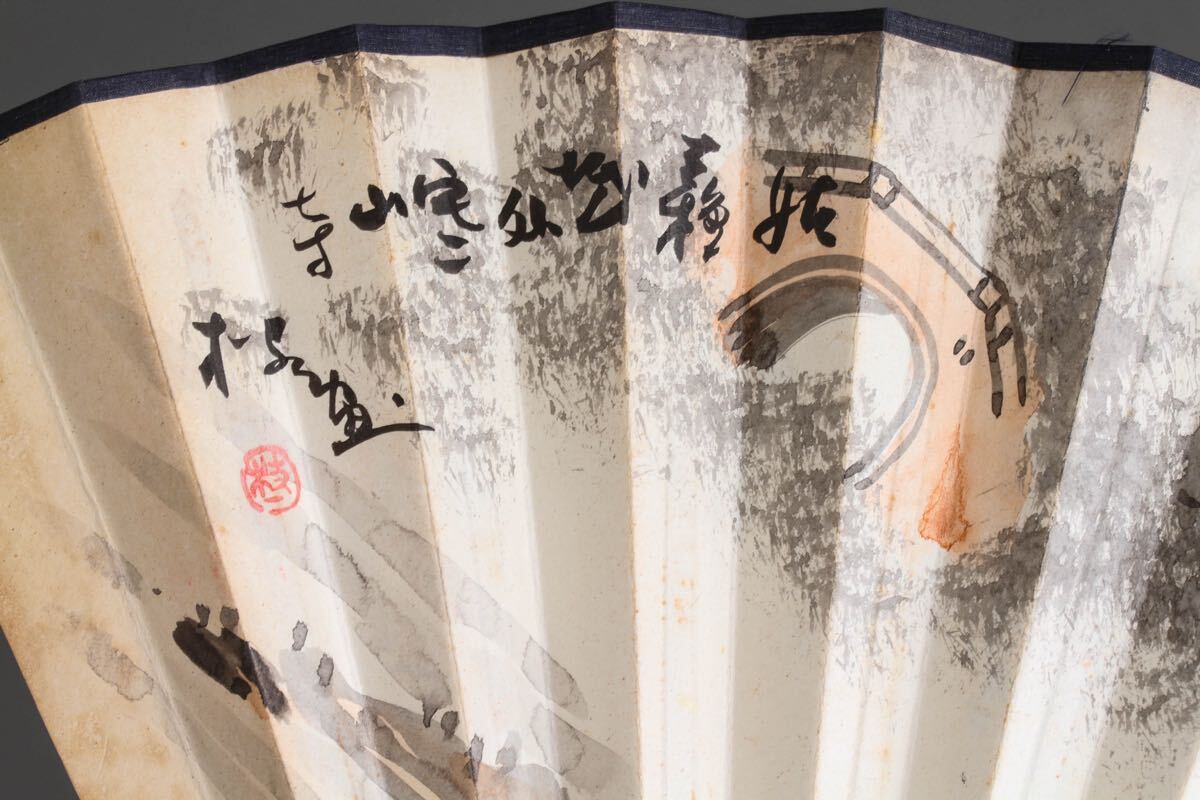 姑蘇城外寒山寺
枝画
枝